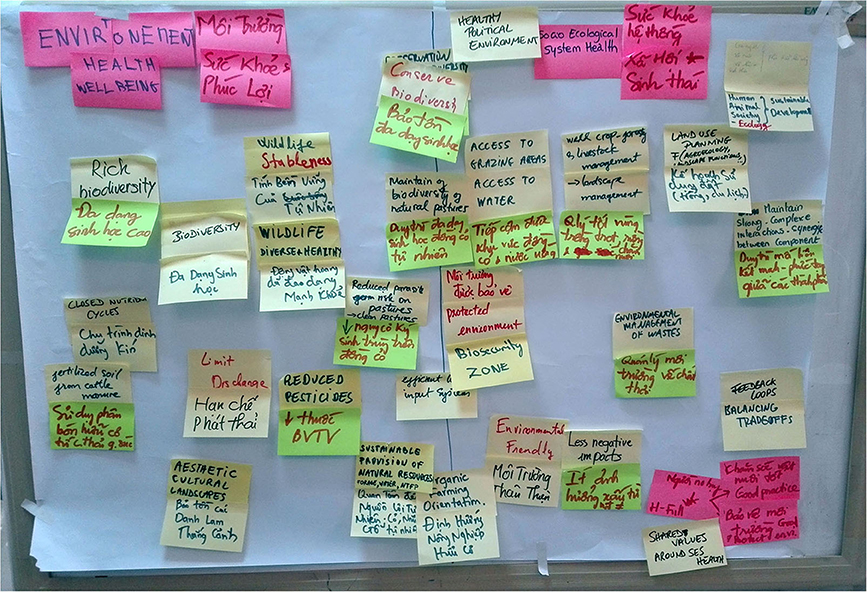 ENVIRTONEMENT
HEALTH
WELL BEING
Môi Trường
Sức Khoẻ &
Phúc Lợi
HEALTHY
POLITICAL
ENVIRONMENT
Socio Ecological
System Health
Sức Khoẻ
hệ thống
Xã Hội
Sinh thái
Human
Animal
Society
Ecology
Sustainable
Development
Conserve
Biodiversity
Bảo tồn
đa dạng sinh học
Rich
biodiversity
Đa dạng
sinh học cao
BIODIVERSITY
Đa Dạng Sinh
học
Wildlife
Stableness
Tính Bền Vững
Của
Tự Nhiên
WILDLIFE
DIVERSE & HEALTHY
Động vật hoang
dã đa dạng
Mạnh Khoẻ
Maintain of
biodiversity of
natural pastures
Duy trì đa dạng
sinh học đồng cỏ
tự nhiên
ACCESS TO
GRAZING AREAS
ACCESS TO
WATER
Tiếp cận được
khu vực đồng
cỏ & nước uống
& livestock
management
→ landscape
management
LAND USE
PLANNING
Kế hoạch Sử
dụng đất
Maintain
Strong - Complexe
interactions - Synergie
between component
CLOSED NUTRITION
CYCLES
Chu trình dinh
dưỡng Kín
fertilized soil
from cattle
manure
Sử dụng phân
bón hữu cơ
Limit
Discharge
Hạn chế
phát thải
REDUCED
PESTICIDES
↓ thuốc
BVTV
Reduced
risk on
pastures
→ clean pastures
↓ nguy cơ ký
sinh trùng trên
đồng cỏ
Môi trường
được bảo vệ
protected
environment
BIOSECURITY
ZONE
efficient
input system
ENVIRONMENTAL
MANAGEMENT
OF WASTES
Quản lý môi
trường về chất
thải
FEEDBACK
LOOPS
BALANCING
TRADEOFFS
AESTHETIC
CULTURAL
LANDSCAPES
Bảo tồn các
Danh Lam
Thắng Cảnh
SUSTAINABLE
PROVISION OF
NATURAL RESOURCES
Organic
Farming
Orientation.
Định Hướng
Nông Nghiệp
Hữu Cơ
Environmental
Friendly
Môi Trường
Thân Thiện
Less negative
impacts
Ít ảnh
hưởng xấu từ
Chăm sóc vật
nuôi tốt
Good practice
Bảo vệ môi
trường Good
Protect envi.
SHARED VALUES
AROUND SES
HEALTH